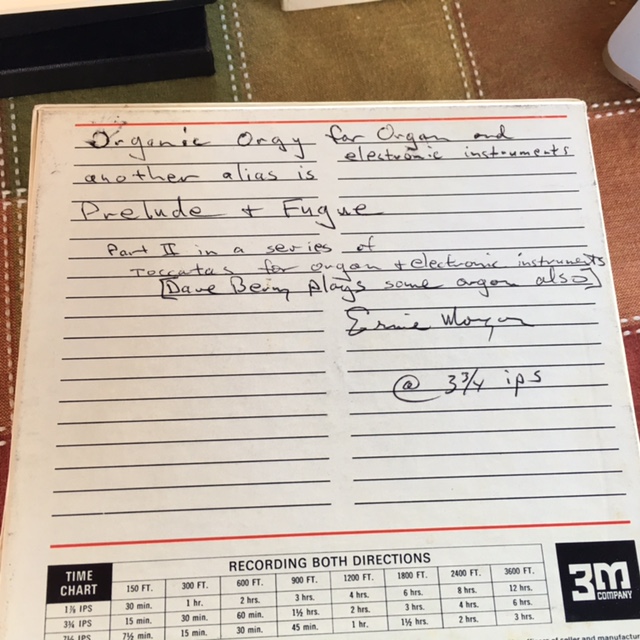 Organic Orgy for Organ and
electronic instruments
another alias is
Prelude + Fugue
Part II in a series of
Toccatas for organ + electronic instruments
[Dave Being plays some organ also]
Ernie Morgan
@ 3 3/4 ips
RECORDING BOTH DIRECTIONS
TIME CHART 150 FT. 300 FT. 600 FT. 900 FT. 1200 FT. 1800 FT. 2400 FT. 3600 FT.
1⅞ IPS 30 min. 1 hr. 2 hrs. 3 hrs. 4 hrs. 6 hrs. 8 hrs. 12 hrs.
3¾ IPS 15 min. 30 min. 60 min. 1½ hrs. 2 hrs. 3 hrs. 4 hrs. 6 hrs.
7½ IPS 7½ min. 15 min. 30 min. 45 min. 1 hr. 1½ hrs. 2 hrs. 3 hrs.
3M
COMPANY
of seller and manufactur